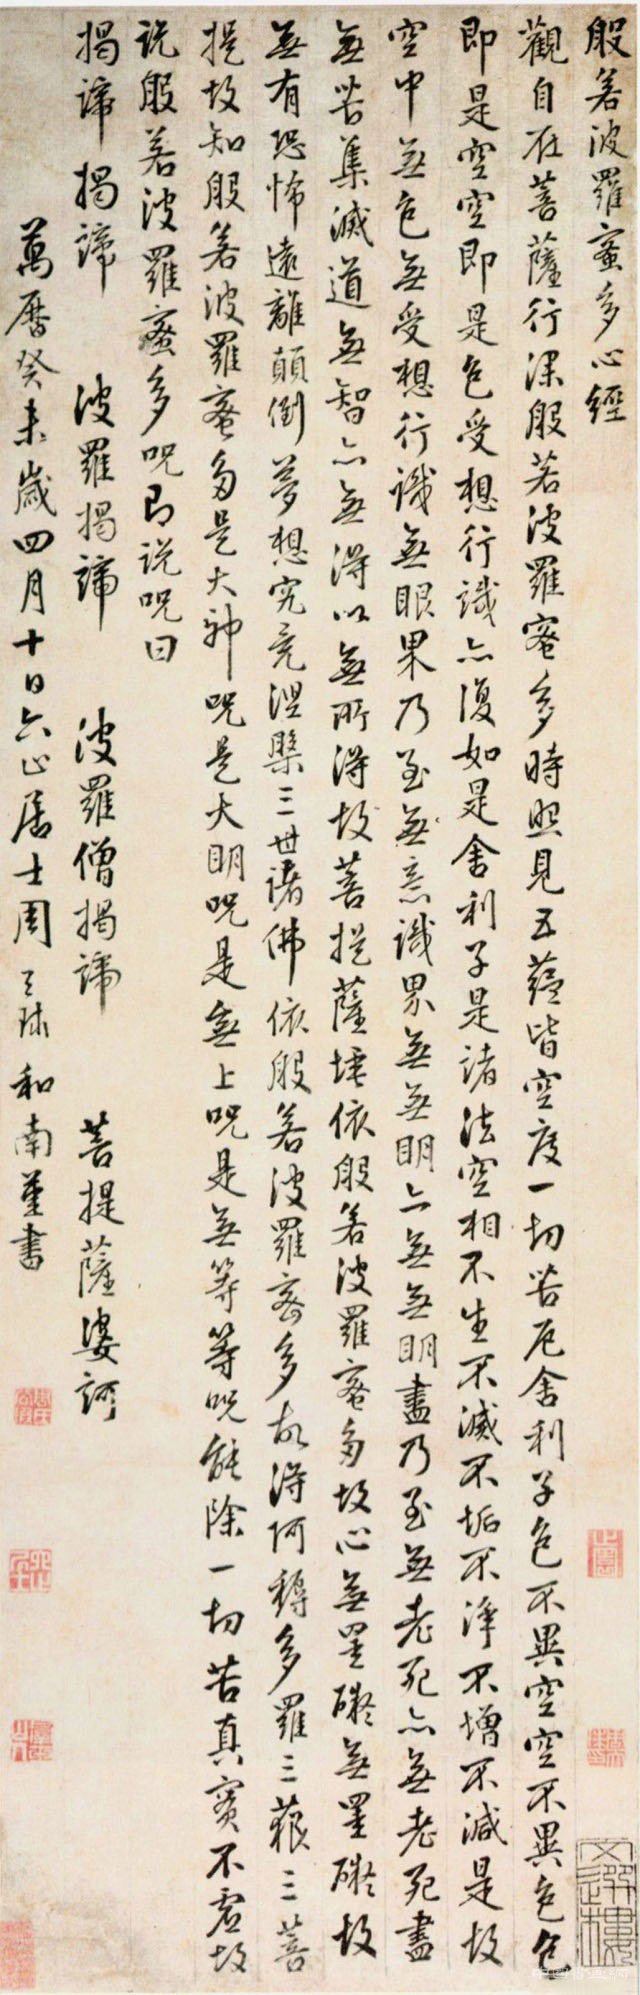 般若波羅蜜多心經
觀自在菩薩行深般若波羅蜜多時照見五蘊皆空度一切苦厄舍利子色不異空空不異色色
即是空空即是色受想行識亦復如是舍利子是諸法空相不生不滅不垢不淨不增不減是故
空中無色無受想行識無眼界乃至無意識界無無明亦無無明盡乃至無老死亦無老死盡
無苦集滅道無智亦無得以無所得故菩提薩埵依般若波羅蜜多故心無罣礙無罣礙故
無有恐怖遠離顛倒夢想究竟涅槃三世諸佛依般若波羅蜜多故得阿耨多羅三藐三菩
提故知般若波羅蜜多是大神呪是大明呪是無上呪是無等等呪能除一切苦真實不虛故
說般若波羅蜜多呪即說呪曰
揭諦揭諦 波羅揭諦 波羅僧揭諦 菩提薩婆訶
萬曆癸未歲四月十日六止居士周天球和南堇書
文選樓